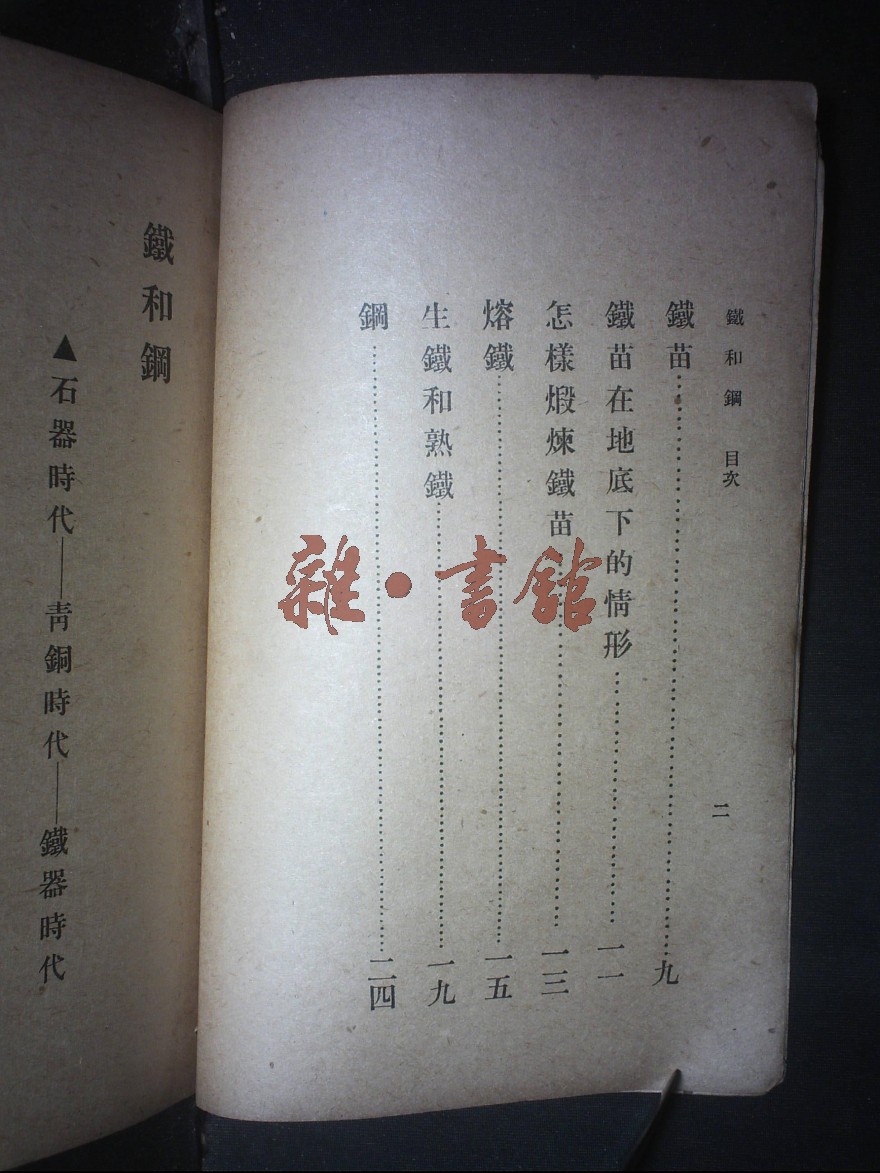 鐵和鋼 目次 二
鐵苗……九
鐵苗在地底下的情形……一一
怎樣煅煉鐵苗……一三
熔鐵……一五
生鐵和熟鐵……一九
鋼……二四
鐵和鋼
▲石器時代——靑銅時代——鐵器時代
雜·書館